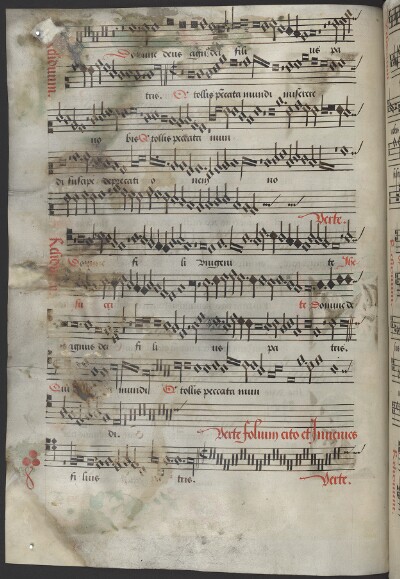 Domine deus agnus dei fili us pa
tris. Qui tollis peccata mundi miserere
no bis Qui tollis peccata mun
di suscipe deprecati o nem no
Verte.
Domine fi li unigeni te Jhe
su cri ste Domine de
us agnus dei fi li us pa tris.
Qui mundi Qui tollis peccata mun
di. Verte folium cito et Invenies
fi lius tris. Verte.